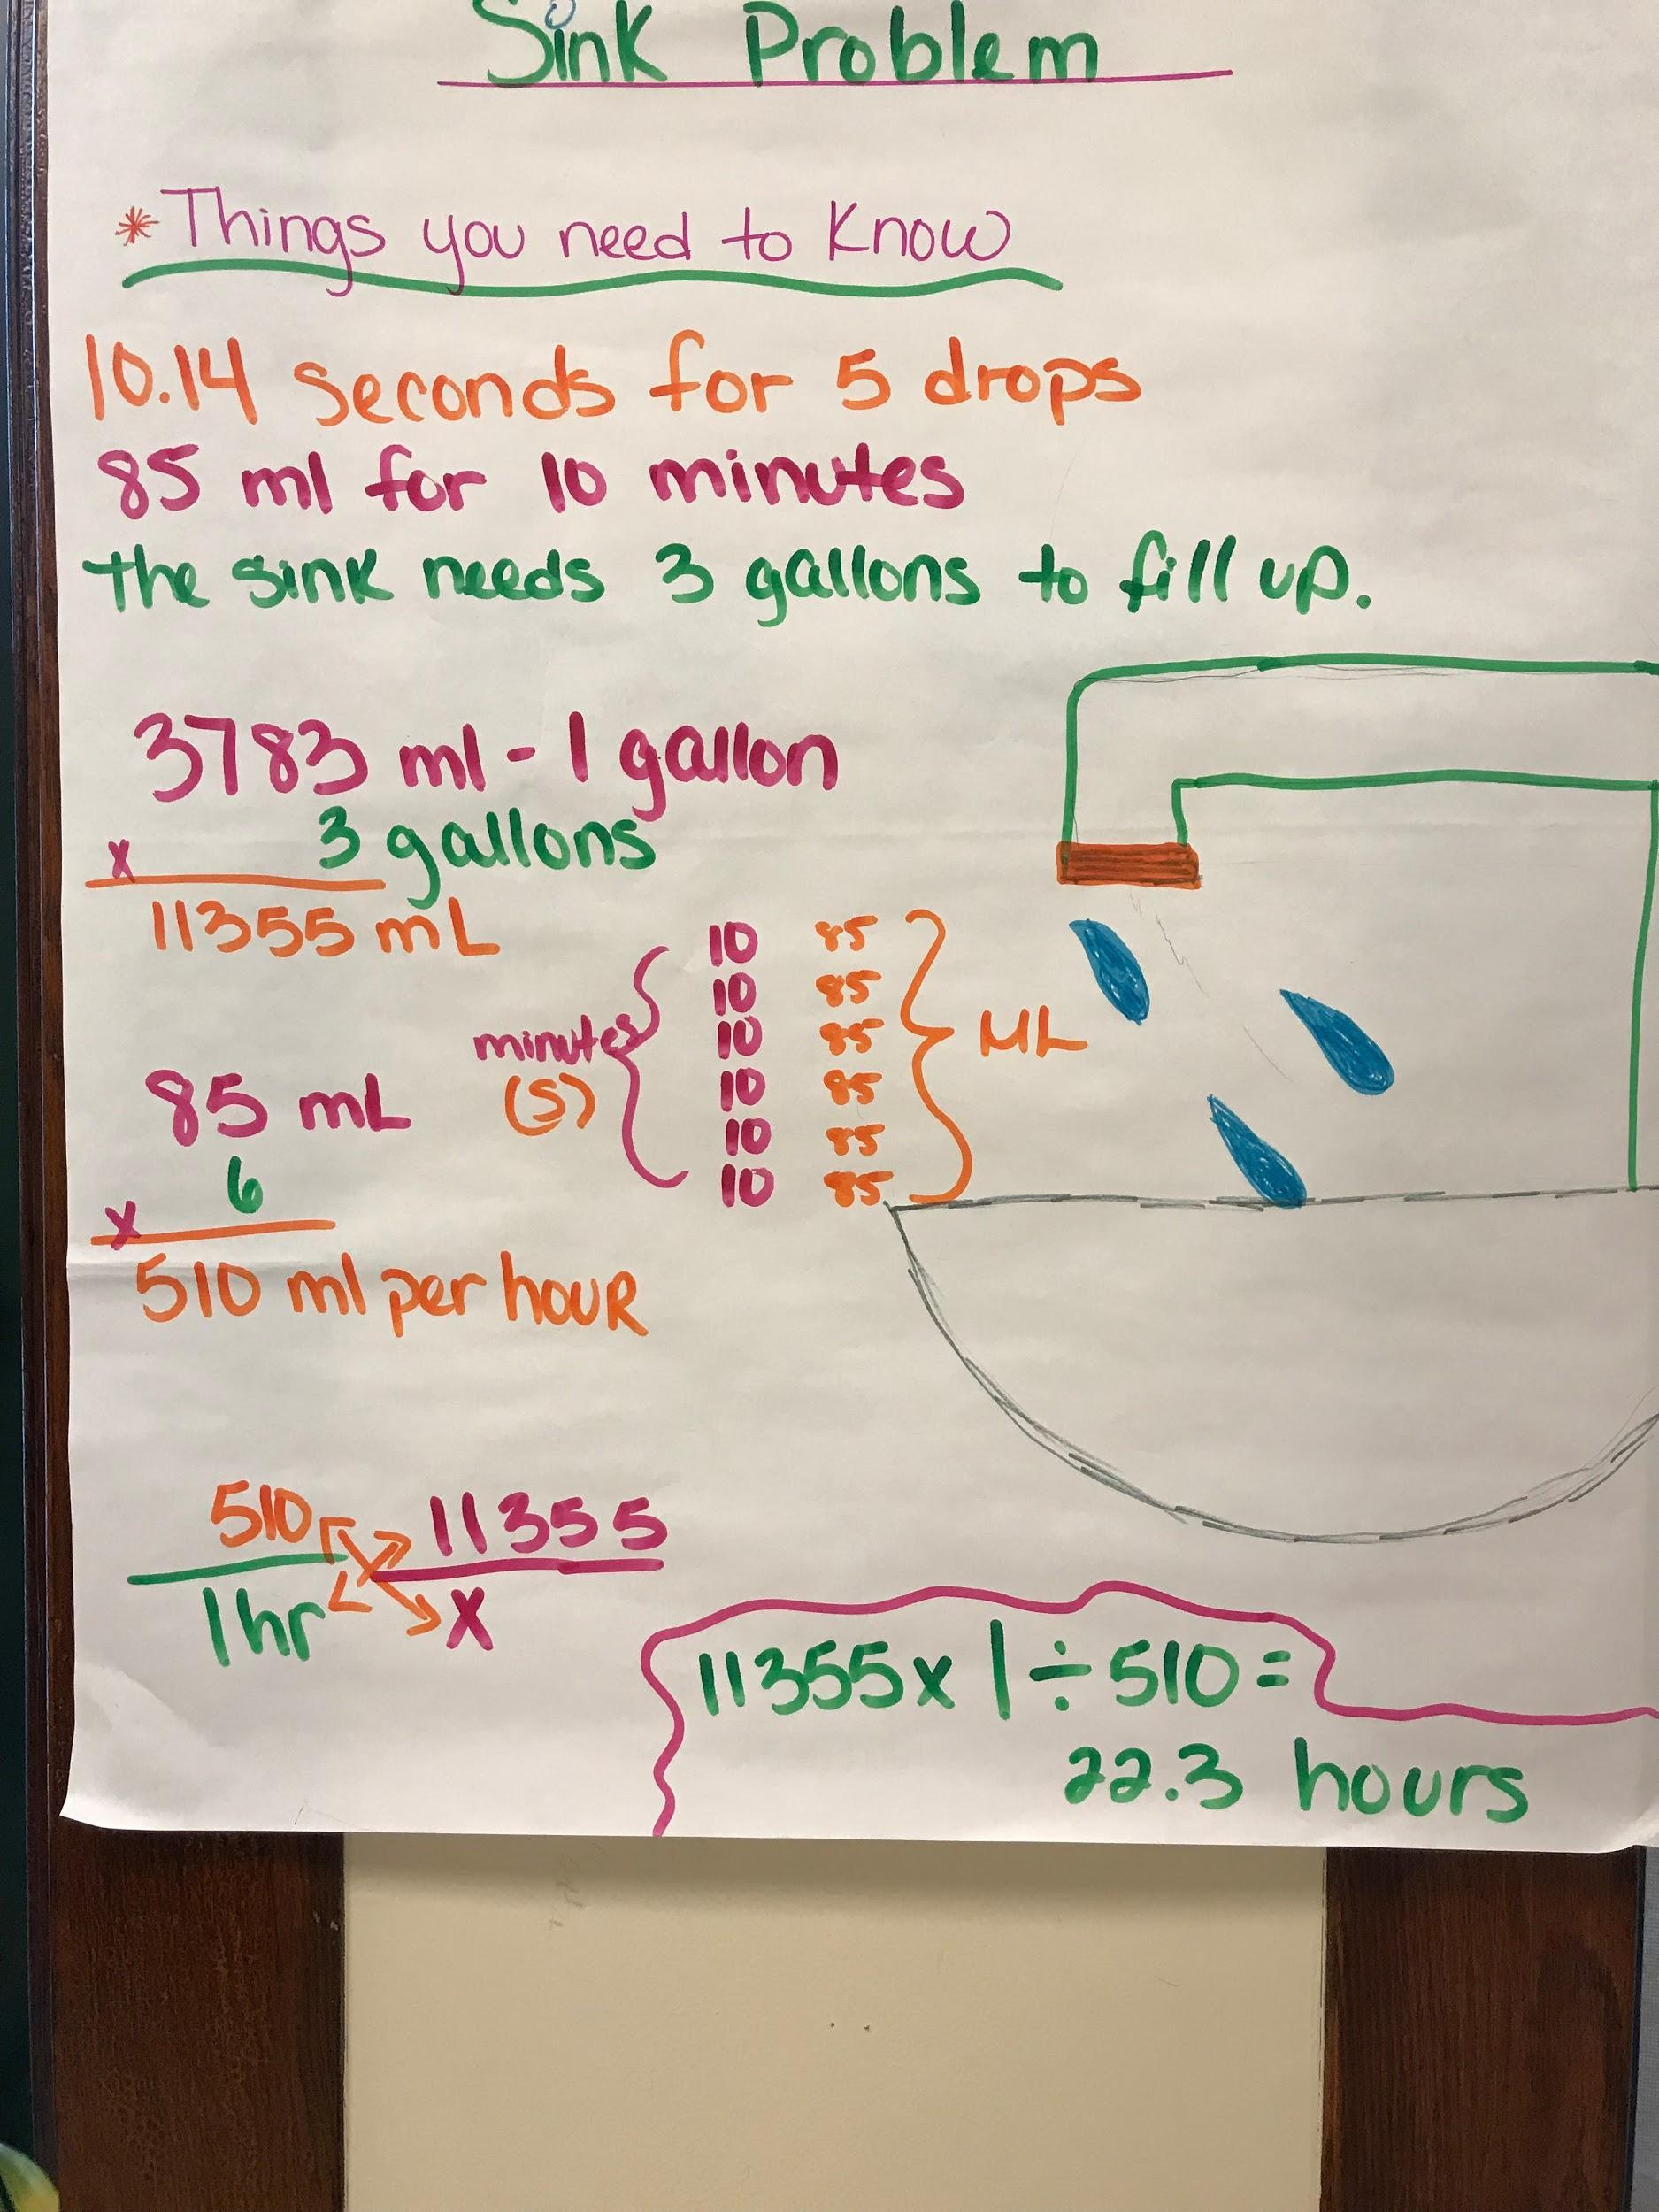 Sink Problem
* Things you need to Know
10.14 seconds for 5 drops
85 ml for 10 minutes
the sink needs 3 gallons to fill up.
3783 ml - 1 gallon
x 3 gallons
11355 mL
85 mL
x 6
510 ml per hour
minute
(s)
10 85
10 85
10 85
10 85
10 85
10 85
ML
510 11355
1hr x
11355 x 1 ÷ 510 =
22.3 hours